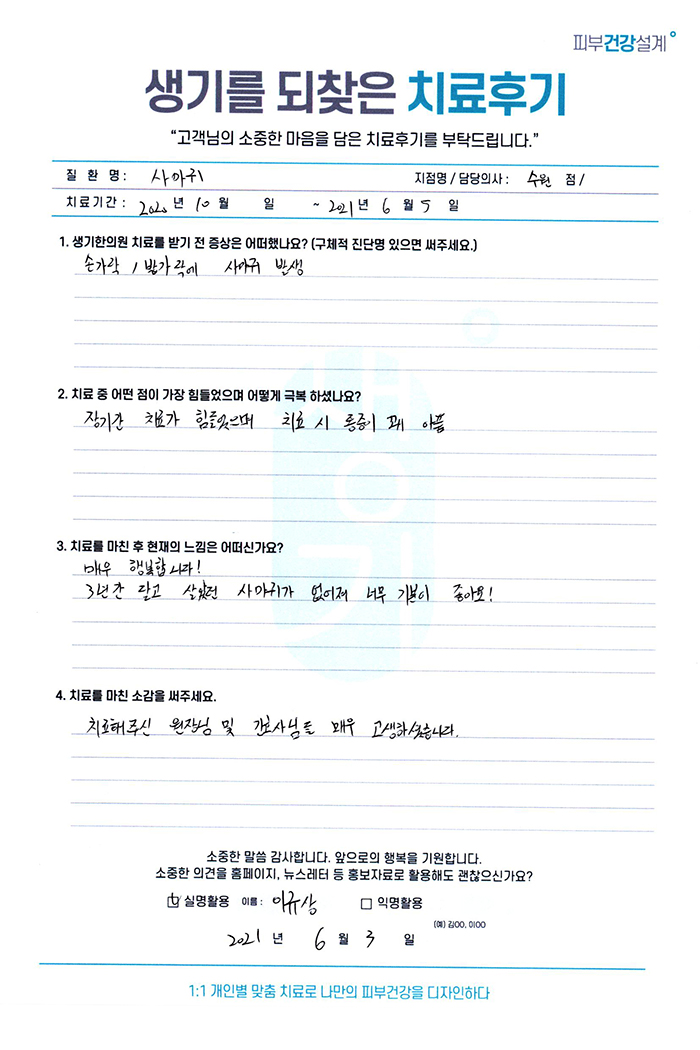 피부건강설계
생기를 되찾은 치료후기
“고객님의 소중한 마음을 담은 치료후기를 부탁드립니다.”
질 환 명 : 사마귀 지점명 / 담당의사 : 수원 점 /
치료기간 : 2020 년 10 월 일 ~ 2021 년 6 월 5 일
1. 생기한의원 치료를 받기 전 증상은 어떠했나요? (구체적 진단명 있으면 써주세요.)
손가락 / 발가락에 사마귀 발생
2. 치료 중 어떤 점이 가장 힘들었으며 어떻게 극복 하셨나요?
장기간 치료가 힘들었으며 치료 시 통증이 꽤 아픔
3. 치료를 마친 후 현재의 느낌은 어떠신가요?
매우 행복합니다!
3년간 달고 살았던 사마귀가 없어져 너무 기분이 좋아요!
4. 치료를 마친 소감을 써주세요.
치료해주신 원장님 및 간호사님들 매우 고생하셨습니다.
소중한 말씀 감사합니다. 앞으로의 행복을 기원합니다.
소중한 의견을 홈페이지, 뉴스레터 등 홍보자료로 활용해도 괜찮으신가요?
실명활용 이름 : 이규상 익명활용
(예) 김OO, 이OO
2021 년 6 월 3 일
1:1 개인별 맞춤 치료로 나만의 피부건강을 디자인하다
생기